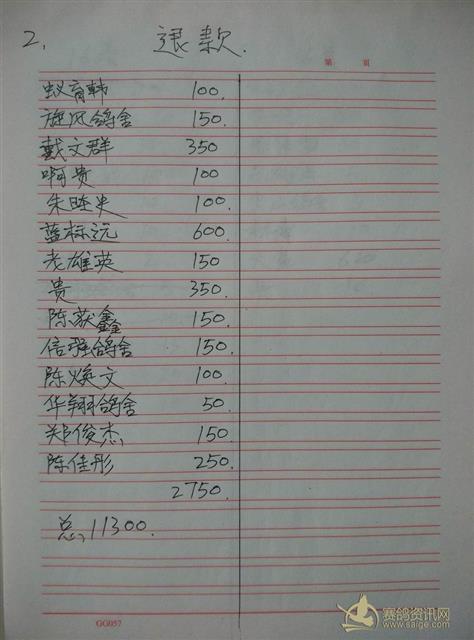 2, 退款.
第 页
蚁育韩 100.
旋风鸽舍 150.
戴文群 350
啊贵 100
朱 100.
蓝标远 600.
老雄英 150
贵 350.
陈荻鑫 150.
信强鸽舍 150.
陈焕文 100.
华翔鸽舍 50.
郑俊杰 150.
陈佳彤 250.
2750.
总,11300.
GG057
赛鸽资讯网
www.saige.com